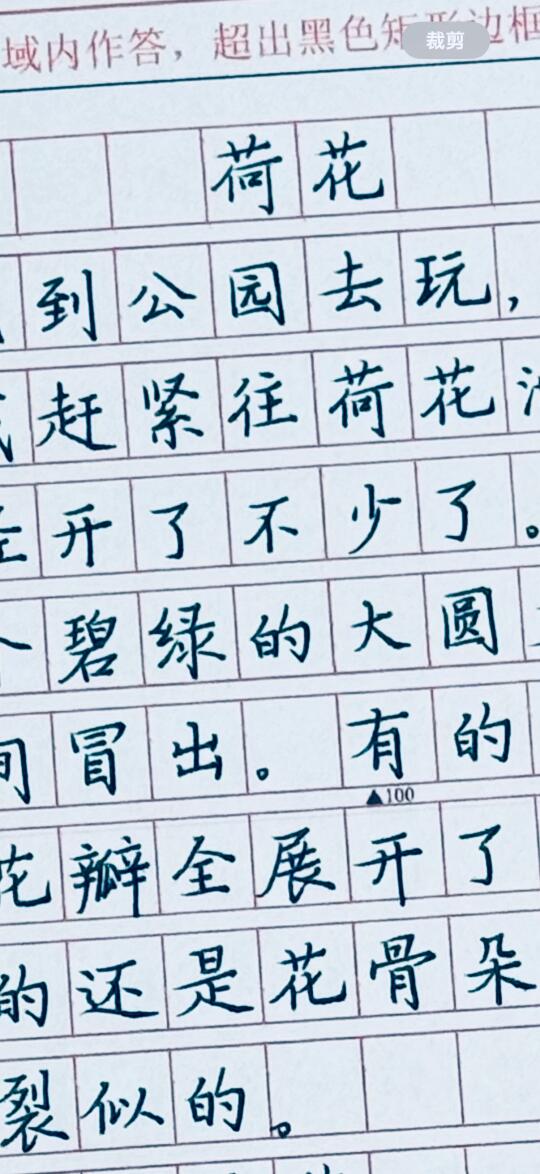 域内作答，超出黑色矩形边框
裁剪
荷花
到公园去玩，
我赶紧往荷花
开了不少了。
个碧绿的大圆
间冒出。有的
▲100
花瓣全展开了
的还是花骨朵
裂似的。